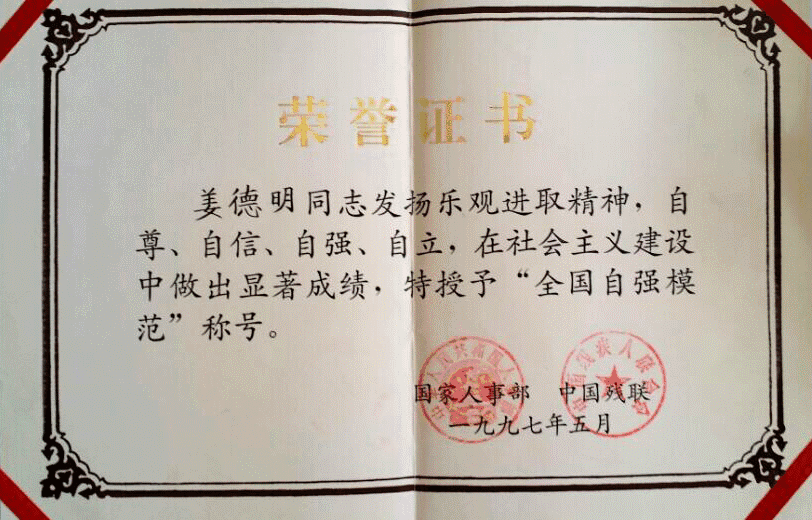 荣誉证书
姜德明同志发扬乐观进取精神，自
尊、自信、自强、自立，在社会主义建设
中做出显著成绩，特授予“全国自强模
范”称号。
国家人事部 中国残联
一九九七年五月
中国残疾人联合会